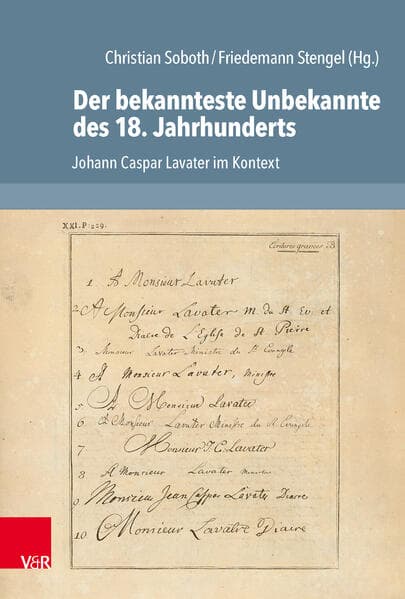 Christian Soboth/Friedemann Stengel (Hg.)
Der bekannteste Unbekannte
des 18. Jahrhunderts
Johann Caspar Lavater im Kontext
XXI. P: 229.
Ecritures gravées
1 A Monsieur Lavater
2 A Monsieur Lavater m. du St. Ev. et
Diacre de L'Eglise de St Pierre
3 Monsieur Lavater Ministre du St. Evangile
4 A Monsieur Lavater, Ministre
5 A Monsieur Lavater
6 A Monsieur Lavater Ministre du S. Evangile
7 Monsieur J. C. Lavater
8 A Monsieur Lavater
9 Monsieur Jean Caspar Lavater Diacre
10 Monsieur Lavatre Diacre
V&R